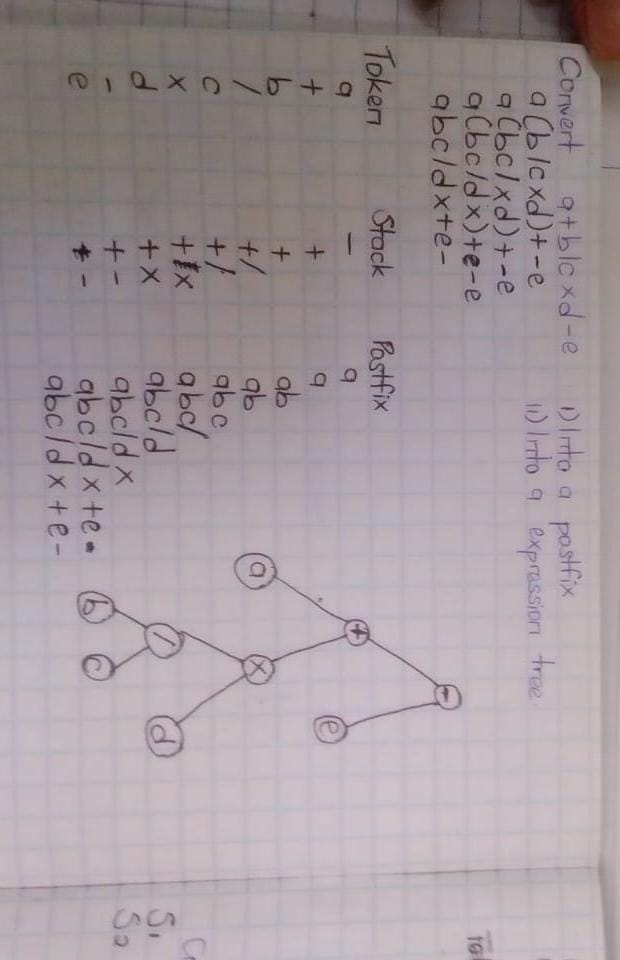 Convert a+b/c×d-e i) Into a postfix
ii) Into a expression tree
a(b/c×d)+-e
a(bc/×d)+-e
a(bc/d×)+e-e
abc/d×+e-
Token Stack Postfix
a - a
+ + a
b + ab
/ +/ ab
c +/ abc
× +× abc/
d +× abc/d
- +- abc/d×
e - abc/d×+e
abc/d×+e-
-
+ e
a ×
/ d
b c
S1
S2